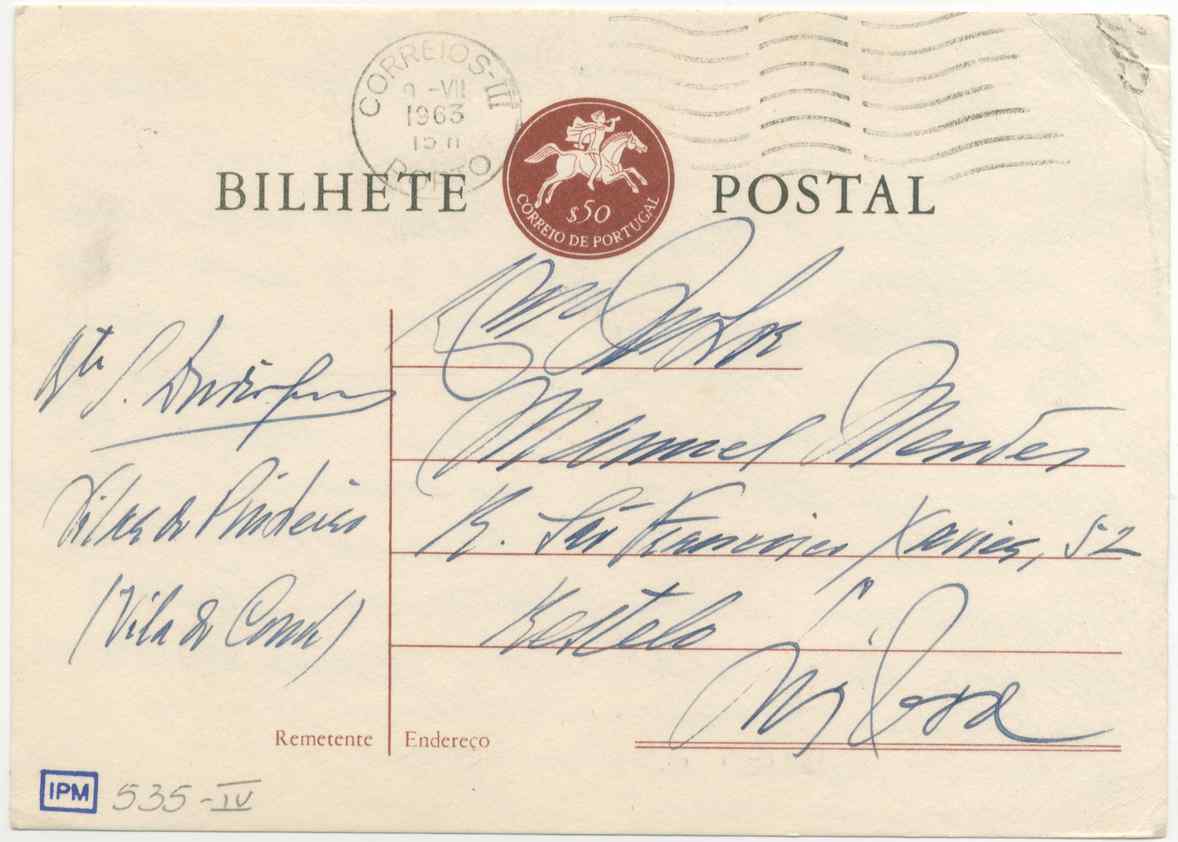 CORREIOS-III
9 -VII
1963
PORTO
BILHETE POSTAL
$50
CORREIO DE PORTUGAL
Manuel Mendes
R. São Francisco Xavier, 52
Restelo
Lisboa
Vilar do Pinheiro
(Vila do Conde)
Remetente
Endereço
IPM 535-IV